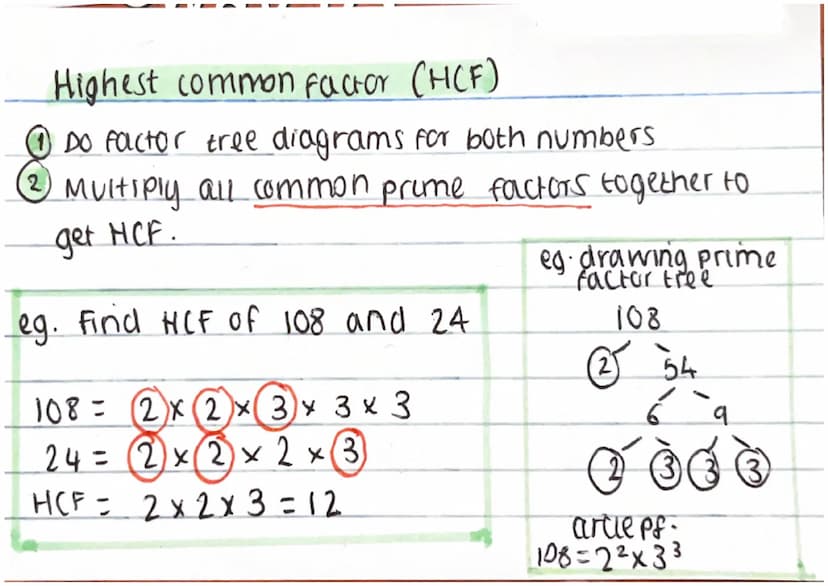 Highest common factor (HCF)
① Do factor tree diagrams for both numbers
② Multiply all common prime factors together to
get HCF.
eg. Find HCF of 108 and 24
108 = 2 x 2 x 3 x 3 x 3
24 = 2 x 2 x 2 x 3
HCF = 2 x 2 x 3 = 12
eg. drawing prime
factor tree
108
2 54
6 9
2 3 3 3
circle pf.
108 = 2² x 3³